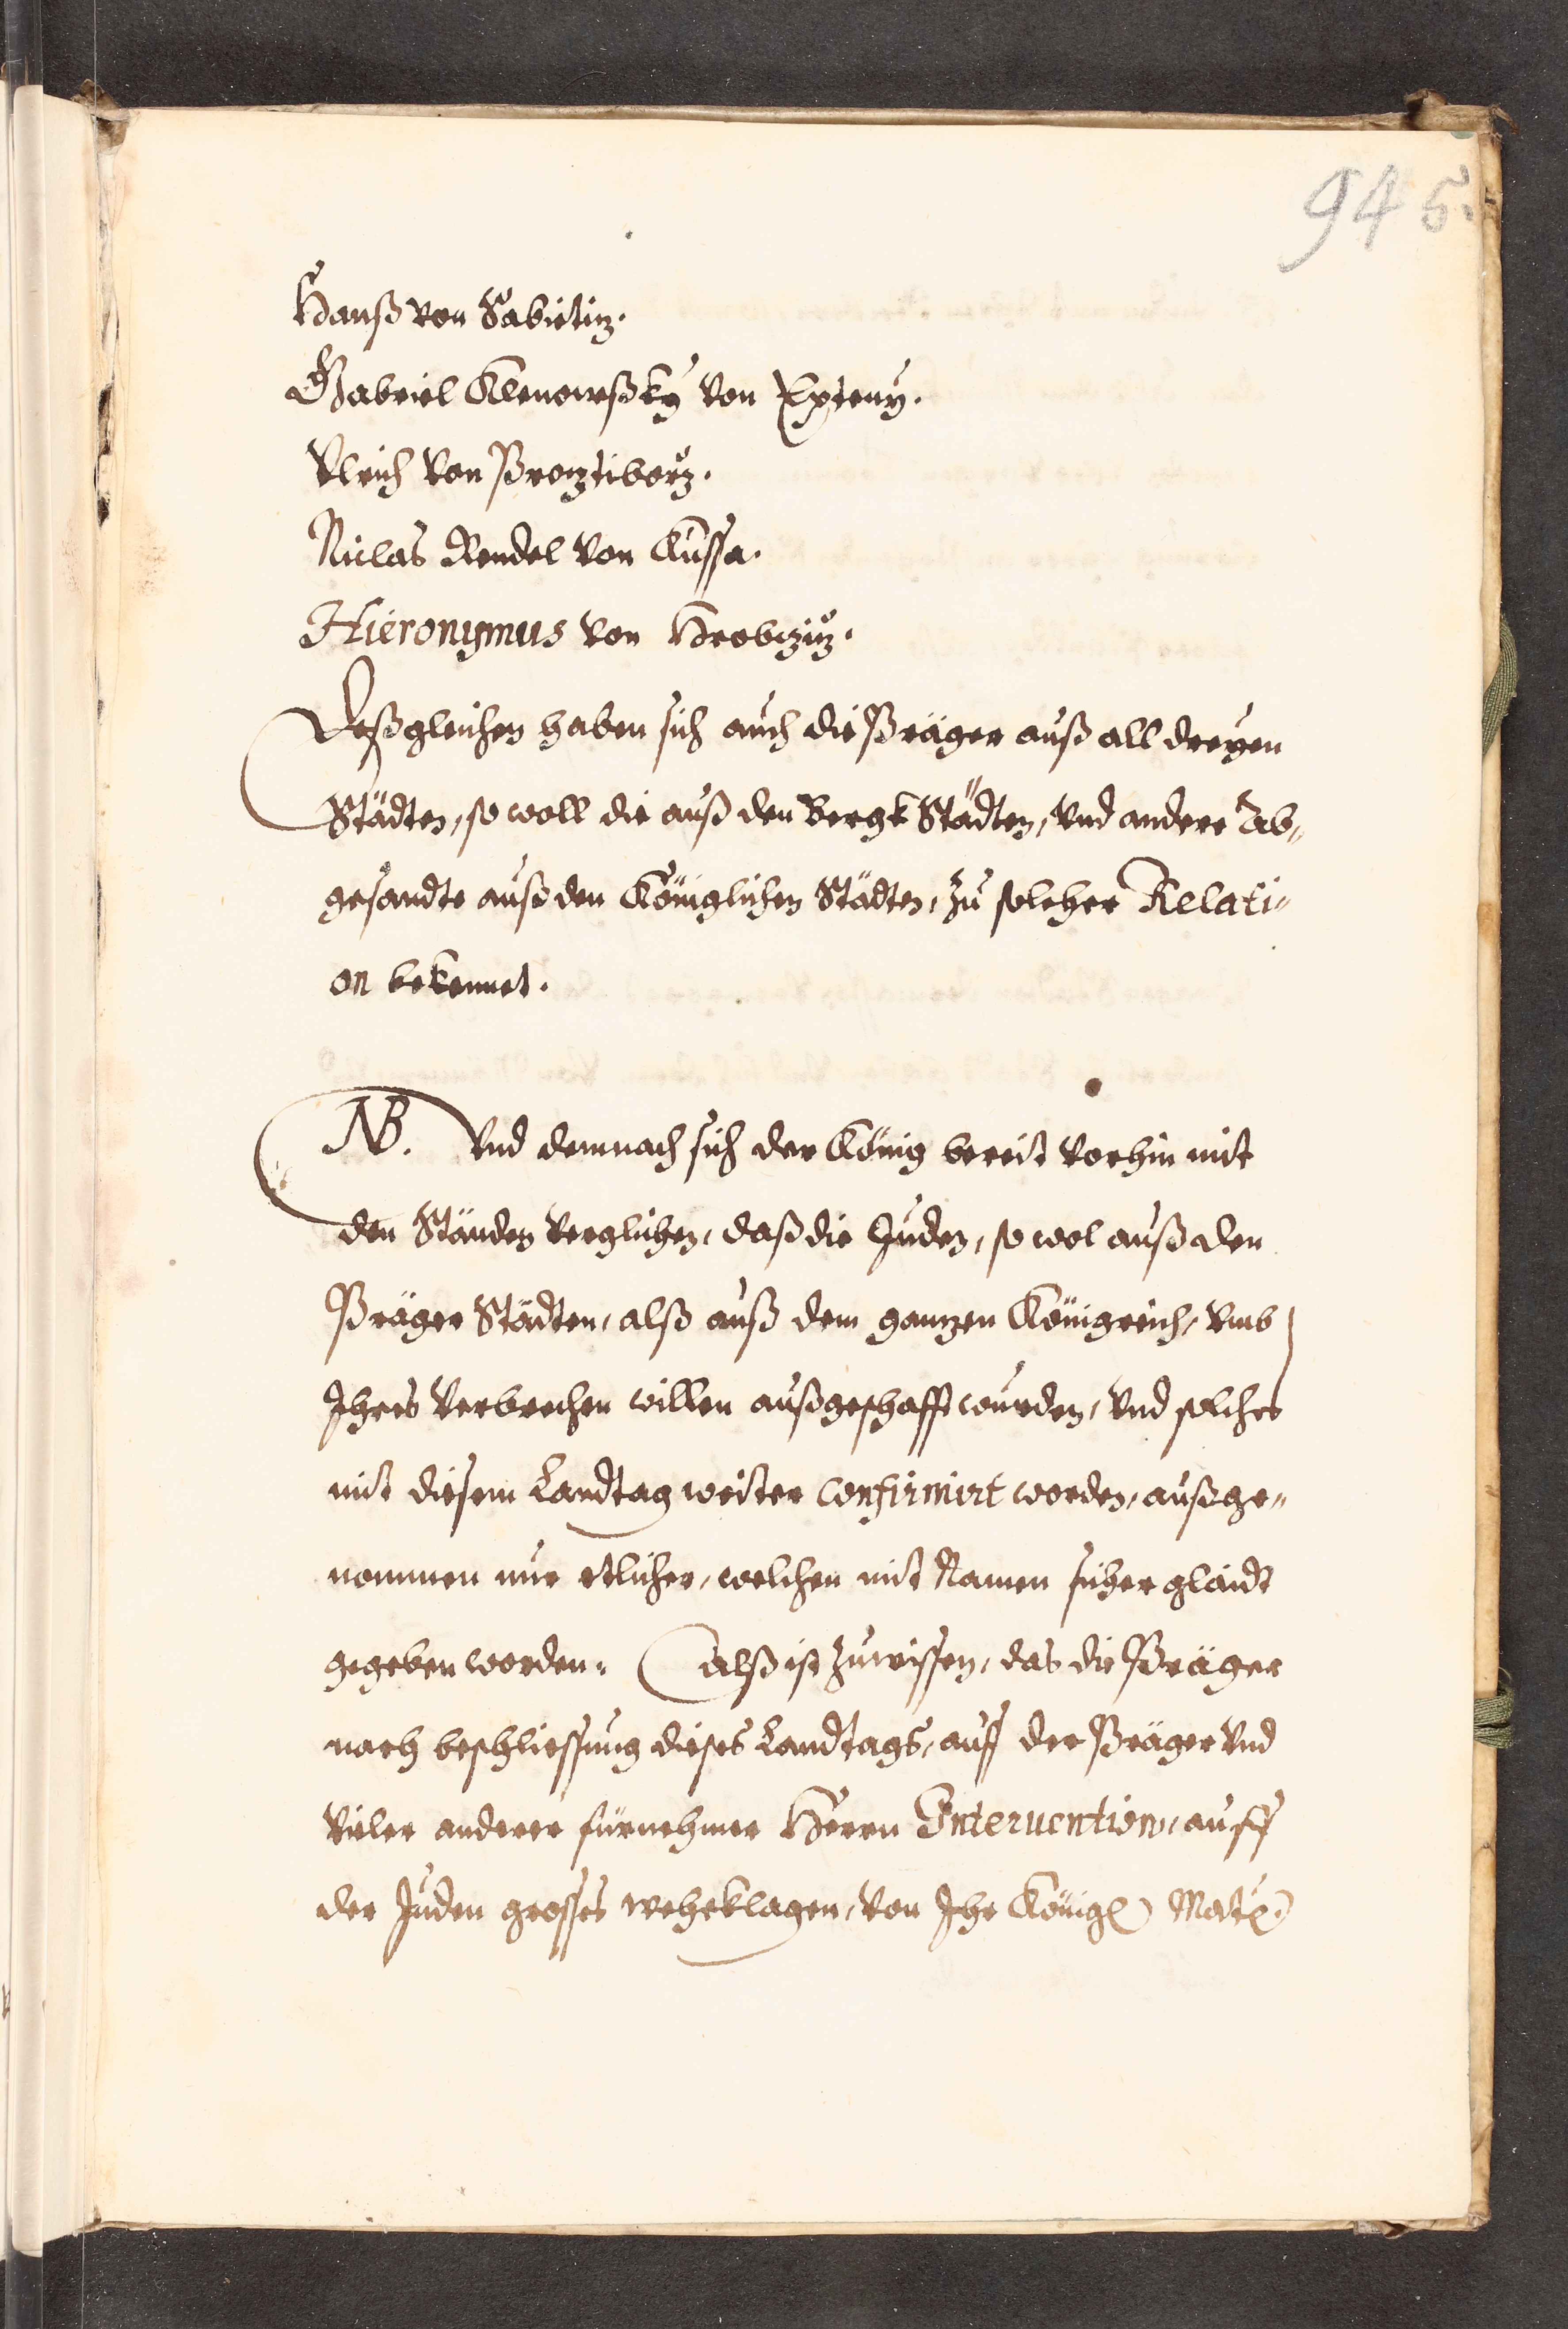 945.
Hanß von Sabietiz.
Gabriel Klenowßky von Pteny.
Vlrich von Procztiborz.
Niclas Rendel von Aussa.
Hieronymus von Hrobcziz.
Deßgleichen haben sich auch die Präger auß all dreyen
Städten, so woll die auß den Bergk Städten, vnd andere Ab„
gesandte auß den Königlichen Städten, zu solcher Relati„
on bekennet.
NB. Vnd demnach sich der König bereit vorhin mit
den Ständen verglichen, daß die Juden, so wol auß den
Präger Städten, alß auß dem ganzen Königreich, vmb
Ihres verbrechen willen außgeschafft wurden, vnd solches
mit diesem Landtag weiter confirmirt worden, außge„
nommen nur etlicher, welchen mit Namen sicher glaidt
gegeben worden. Alß ist zuwissen, das die Präger
nach beschliessung dises Landtags, auff der Präger vnd
vieler anderer fürnehmer Herrn Interuention, auff
der Juden grosses weheklagen, von Ihr Königl. Matt.